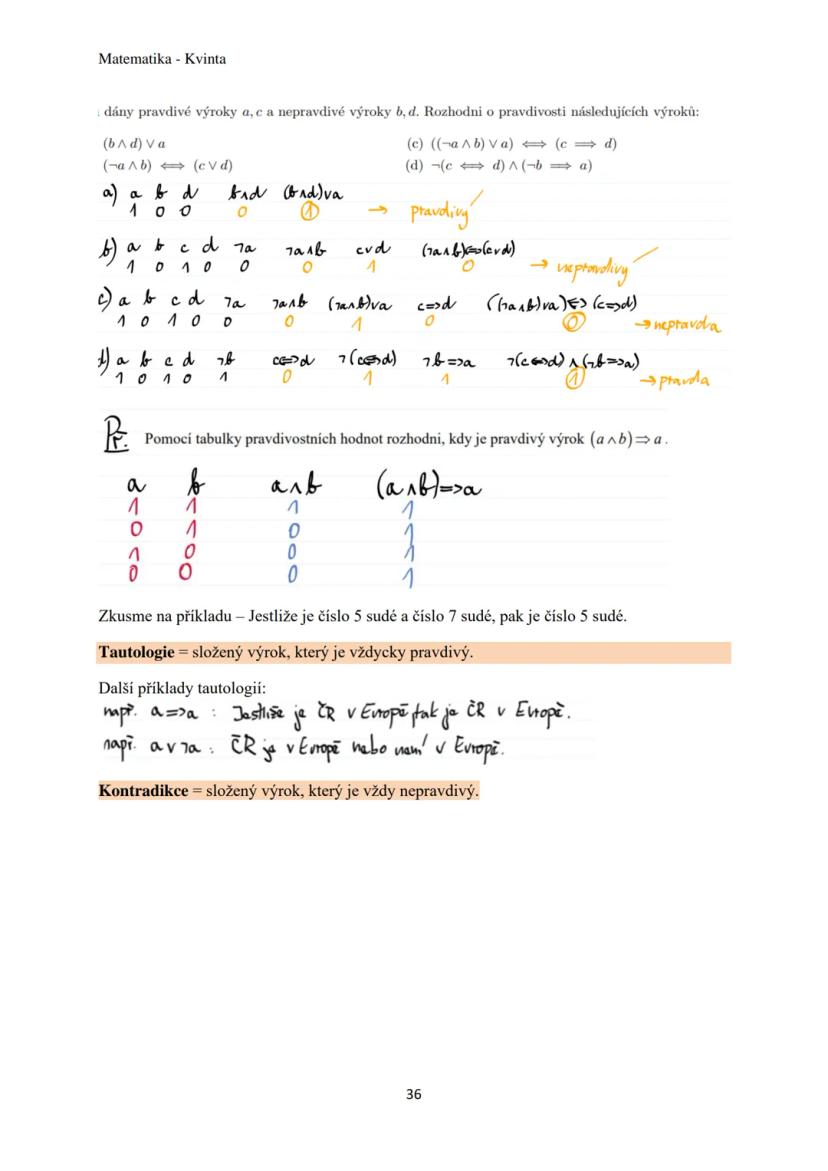 Matematika - Kvinta
dány pravdivé výroky a, c a nepravdivé výroky b, d. Rozhodni o pravdivosti následujících výroků:
(b ∧ d) ∨ a (c) ((¬a ∧ b) ∨ a) ⟺ (c ⟹ d)
(¬a ∧ b) ⟺ (c ∨ d) (d) ¬(c ⟺ d) ∧ (¬b ⟹ a)
a) a b d b∧d (b∧d)∨a
1 0 0 0 1 → pravdivý
b) a b c d ¬a ¬a∧b c∨d (¬a∧b)⇔(c∨d)
1 0 1 0 0 0 1 0 → nepravdivý
c) a b c d ¬a ¬a∧b (¬a∧b)∨a c⇒d ((¬a∧b)∨a)⇔(c⇒d)
1 0 1 0 0 0 1 0 0 → nepravda
d) a b c d ¬b c⇔d ¬(c⇔d) ¬b⇒a ¬(c⇔d)∧(¬b⇒a)
1 0 1 0 1 0 1 1 1 → pravda
Př. Pomocí tabulky pravdivostních hodnot rozhodni, kdy je pravdivý výrok (a∧b)⇒a.
a b a∧b (a∧b)⇒a
1 1 1 1
0 1 0 1
1 0 0 1
0 0 0 1
Zkusme na příkladu – Jestliže je číslo 5 sudé a číslo 7 sudé, pak je číslo 5 sudé.
Tautologie = složený výrok, který je vždycky pravdivý.
Další příklady tautologií:
např. a⇒a : Jestliže je ČR v Evropě tak je ČR v Evropě.
např. a∨¬a : ČR je v Evropě nebo není v Evropě.
Kontradikce = složený výrok, který je vždy nepravdivý.
36